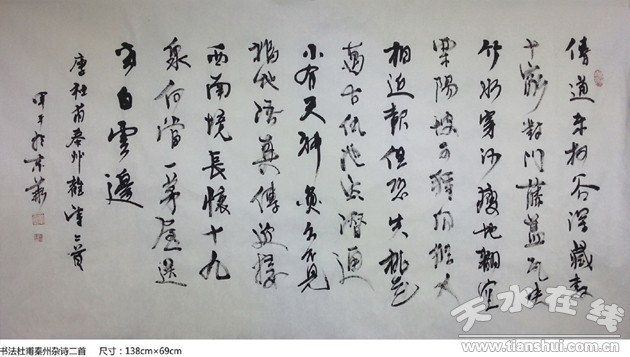 傳道東柯谷深藏數
十家對門藤蓋瓦映
竹水穿沙瘦地翻宜
粟陽坡可種瓜船人
相近報但恐失桃花
萬古仇池穴潛通
小有天神魚人不見
福地語真傳近接
西南境長懷十九
泉何當一茅屋送
老白雲邊
唐杜甫秦州雜詩二首
甲午於京華
天水在线
www.tianshui.com.cn
书法杜甫秦州杂诗二首 尺寸：138cm×69cm